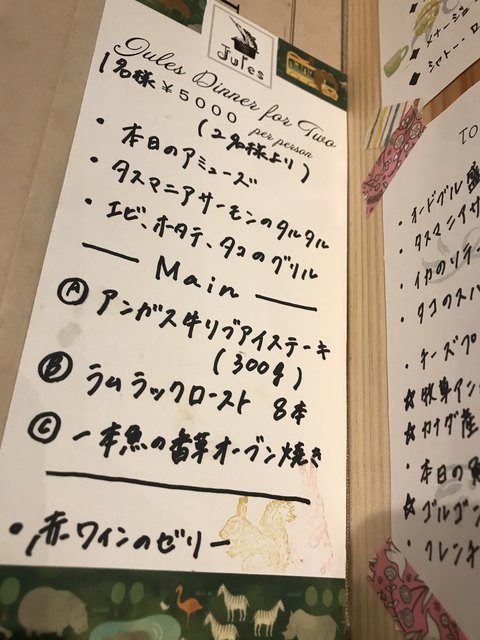 Jules
Jules Dinner for Two
1名様 ¥5000 per person
(2名様より)
・本日のアミューズ
・タスマニアサーモンのタルタル
・エビ、ホタテ、タコのグリル
Main
Ⓐ アンガス牛リブアイステーキ
(300g)
Ⓑ ラムラックロースト 8本
Ⓒ 一本魚の香草オーブン焼き
・赤ワインのゼリー
シャトー・
TO
・オードブル
・タスマニア
・イカのリ
・タコのス
・チーズ
☆牧草
☆カイダ産
・本日の
☆ゴルゴン
・クレン